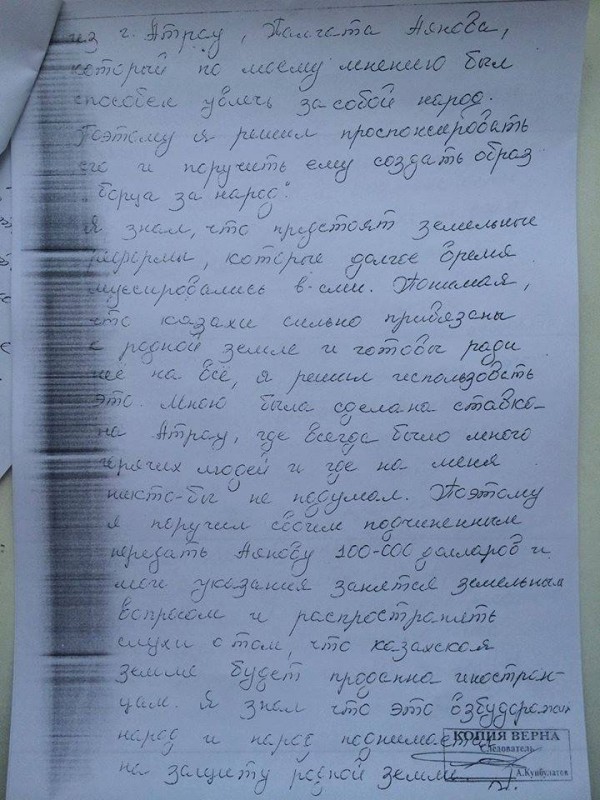 из г. Атрау, Талгата Аянова,
который по моему мнению был
способен увлечь за собой народ.
Поэтому я решил проспонсировать
его и поручить ему создать образ
борца за народ".
Я знал, что предстоят земельные
реформы, которые долгое время
муссировались в сми. Понимая,
что казахи сильно привязаны
к родной земле и готовы ради
неё на всё, я решил использовать
это. Мною была сделана ставка
на Атрау, где всегда было много
горячих людей и где на меня
никто-бы не подумал. Поэтому
я поручил своим подчиненным
передать Аянову 100-000 долларов и
мои указания занятся земельным
вопросом и распространять
слухи о том, что казахская
земля будет проданна иностран-
цам. Я знал что это взбудоражит
народ и народ поднимается
на защиту родной земли.
КОПИЯ ВЕРНА
Следователь
А.Куябулатов